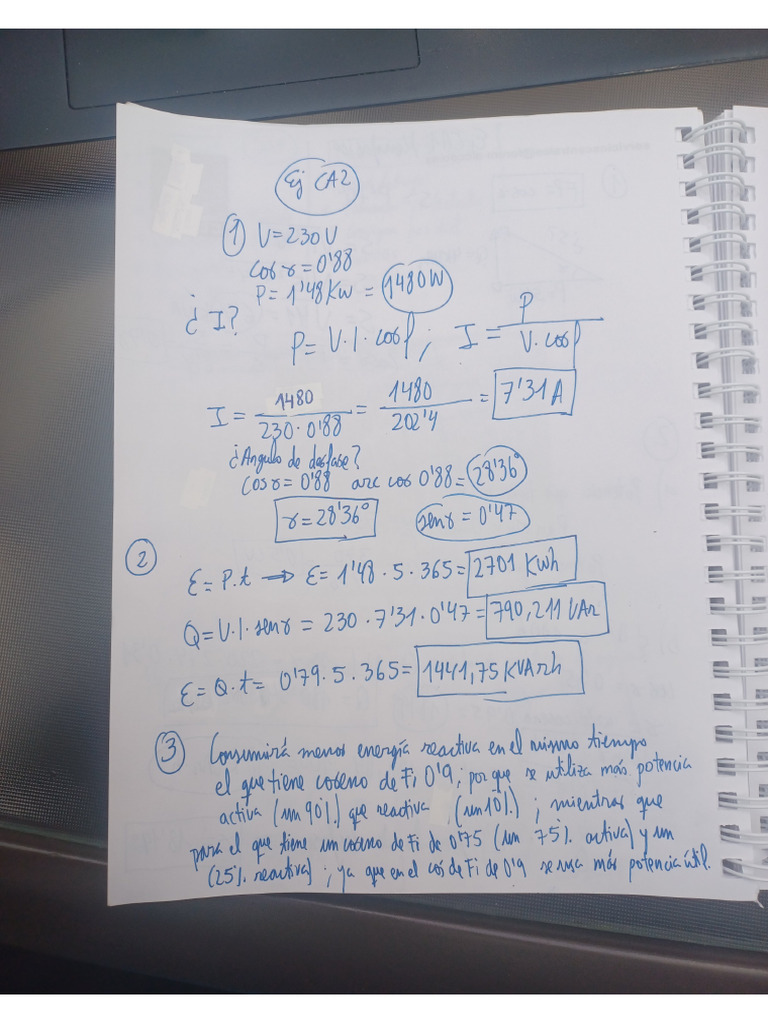 Ej CA2
① V=230V
cos r=0'88
P= 1'48 Kw = 1480W
¿I?
P= V·I·cosφ; I= P / V·cosφ
I= 1480 / 230·0'88 = 1480 / 202'4 = 7'31 A
¿Angulo de desfase?
cos r= 0'88 arc cos 0'88= 28'36°
r=28'36° sen r = 0'47
②
E= P.t → E= 1'48·5·365= 2701 KWh
Q=V·I·sen r = 230·7'31·0'47= 790,211 VAr
E= Q·t= 0'79·5·365= 1441,75 KVArh
③ Consumirá menos energía reactiva en el mismo tiempo
el que tiene coseno de Fi 0'9; por que se utiliza más potencia
activa (un 90%) que reactiva (un 10%); mientras que
para el que tiene un coseno de Fi de 0'75 (un 75% activa) y un
(25% reactiva); ya que en el cos de Fi de 0'9 se usa más potencia útil.